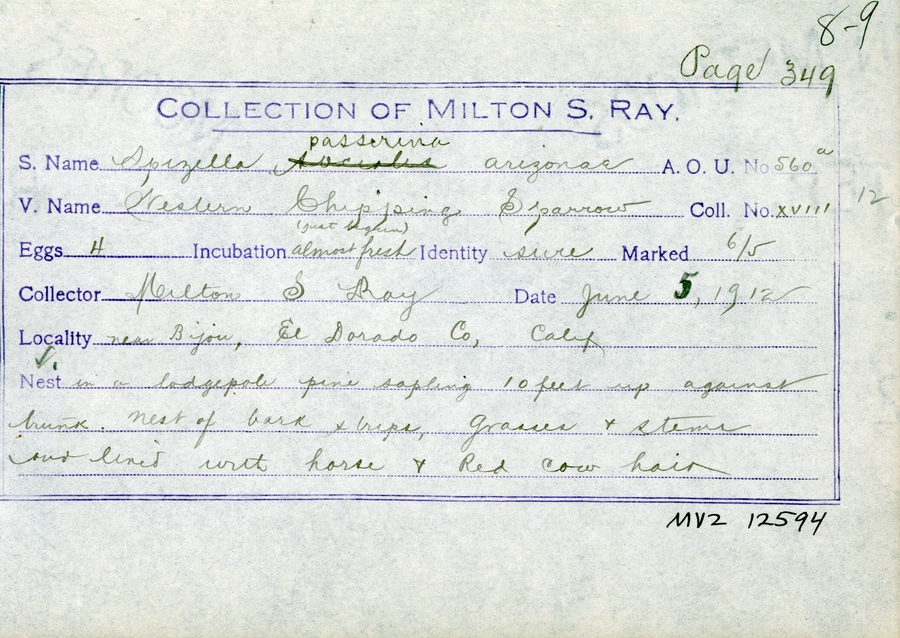 8-9
Page 349
COLLECTION OF MILTON S. RAY.
passerina
S. Name Spizella socialis arizonae A. O. U. No. 560a
V. Name Western Chipping Sparrow Coll. No. XVIII 12
(just begun)
Eggs 4 Incubation almost fresh Identity sure Marked 6/5
Collector Milton S Ray Date June 5, 1912
Locality near Bijou, El Dorado Co, Calif
Nest in a lodgepole pine sapling 10 feet up against
trunk. Nest of bark strips, grasses + stems
and lined with horse + Red cow hair
MVZ 12594